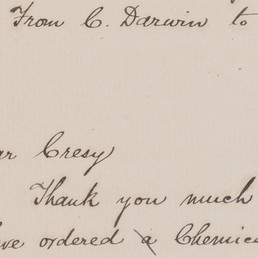 From C. Darwin to
ar Cresy
Thank you much
ve ordered a Chemica